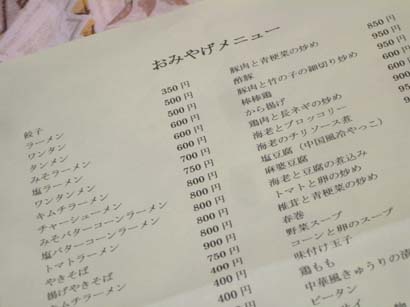 おみやげメニュー
餃子 350円
ラーメン 500円
ワンタン 500円
タンメン 600円
みそラーメン 600円
塩ラーメン 600円
ワンタンメン 700円
キムチラーメン 750円
チャーシューメン 800円
みそバターコーンラーメン 800円
塩バターコーンラーメン 800円
トマトラーメン 800円
やきそば
揚げやきそば
キムチラーメン
900円
400円
400円
400円
豚肉と青梗菜の炒め 850円
酢豚 950円
豚肉と竹の子の細切り炒め 950円
棒棒鶏 600円
から揚げ
鶏肉と長ネギの炒め
海老とブロッコリー
海老のチリソース煮
塩豆腐(中国風冷やっこ)
麻婆豆腐
海老と豆腐の煮込み
トマトと卵の炒め
椎茸と青梗菜の炒め
春巻
野菜スープ
コーンと卵のスープ
味付け玉子
鶏もも
中華風きゅうりの漬
ピータン